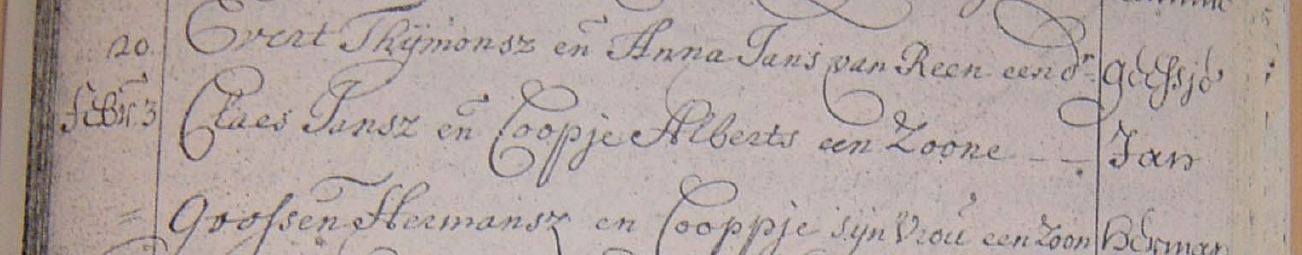 20 Evert Thÿmonsz en Anna Jans van Reen een dr Geesjo
Febr: 3 Claes Jansz en Coopje Alberts een Zoone - - Jan
= Goossen Hermansz en Cooppje sijn Vrou een Zoon Herman